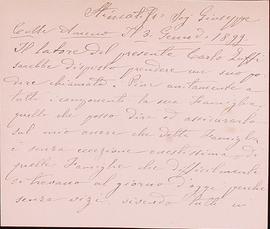 Sig Giuseppe
Colle Ameno 3. Genn. 1899.
Il latore del presente Carlo Zuffi
sarebbe disposto prendere un suo po-
dere chiamato Pine unitamente a
tutti i componenti la sua Famiglia,
quello che posso dire ed assicurarlo
sul mio onore che detta Famiglia
è senza eccezione onestissima, di
quelle Famiglie che difficilmente
si trovano al giorno d'oggi perché
senza vizi, vivendo tutti in